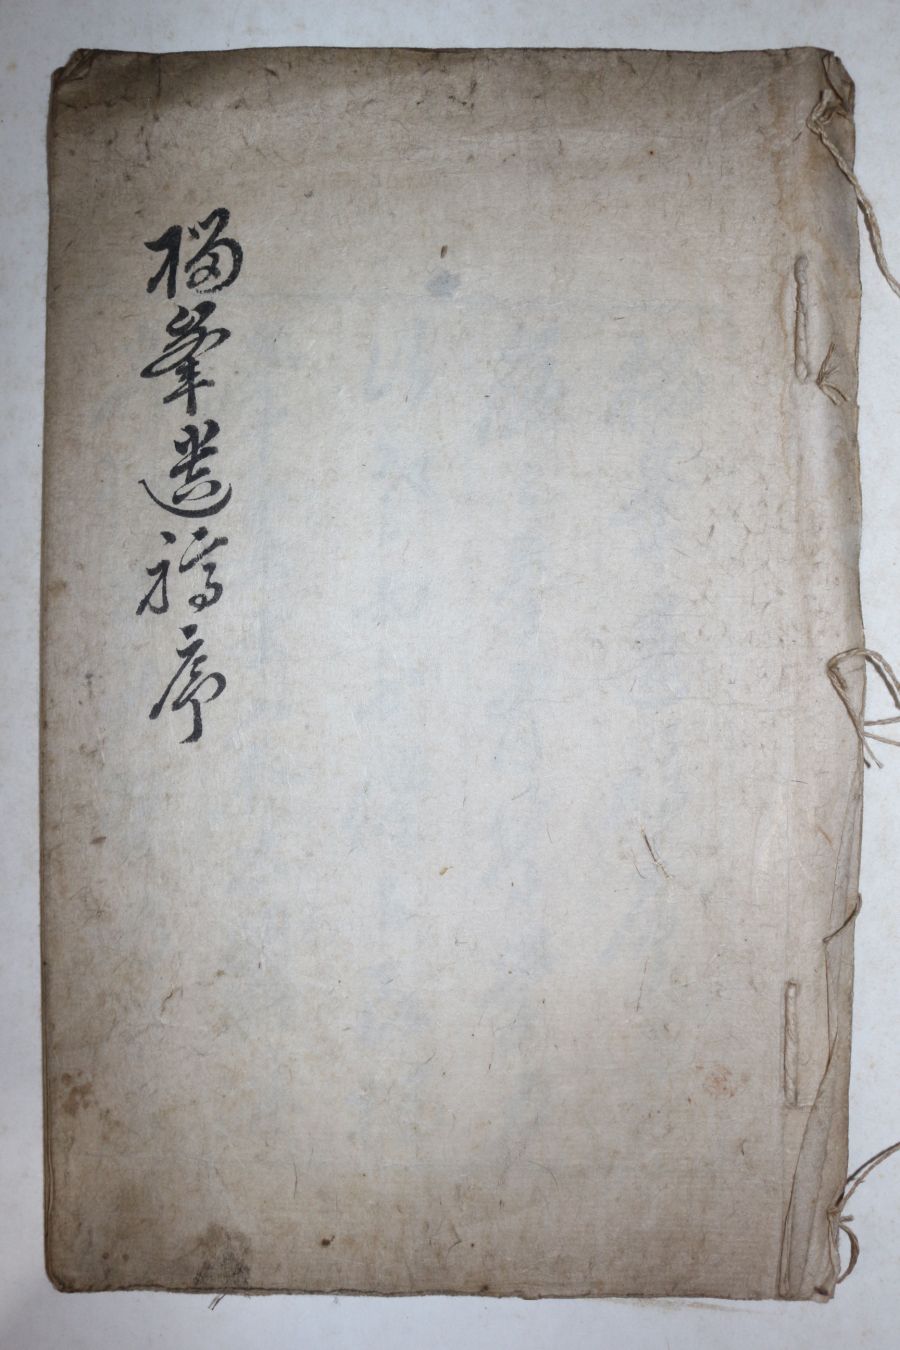 榴峯遺稿序